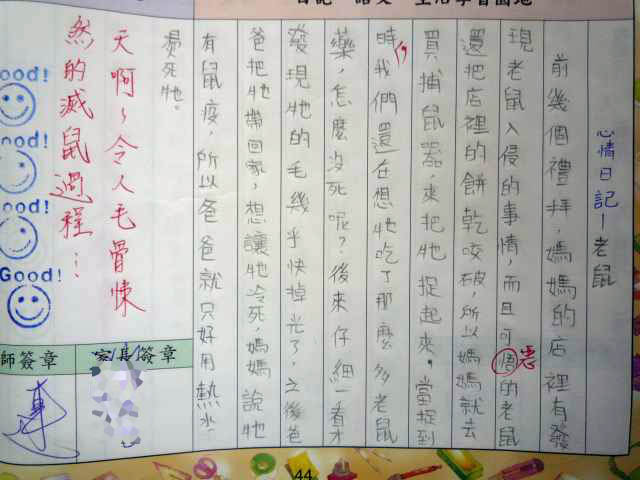 心情日記—老鼠
前幾個禮拜，媽媽的店裡有發
現老鼠入侵的事情，而且可惡的老鼠
還把店裡的餅乾咬破，所以媽媽就去
買捕鼠器，來把牠捉起來。當捉到
時，我們還在想牠吃了那麼多老鼠
藥，怎麼沒死呢？後來仔細一看才
發現牠的毛幾乎快掉光了，之後爸
爸把牠帶回家，想讓牠冷死，媽媽說牠
有鼠疫，所以爸爸就只好用熱水
燙死牠。
天啊~令人毛骨悚
然的滅鼠過程…
Good!
Good!
Good!
Good!
師簽章
家長簽章
44